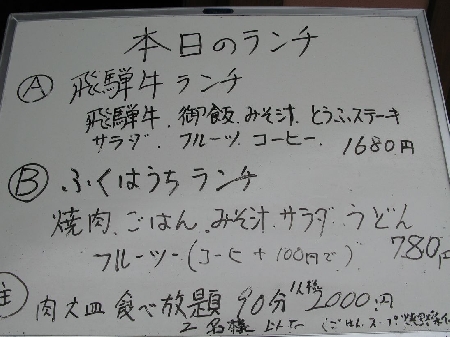 本日のランチ
Ⓐ 飛騨牛ランチ
飛騨牛.御飯.みそ汁.とうふステーキ
サラダ.フルーツ.コーヒー. 1680円
Ⓑ ふくはうちランチ
焼肉.ごはん.みそ汁.サラダ.うどん
フルーツー(コーヒー+100円で) 780円
肉大皿 食べ放題 90分 1人様 2000円
二名様